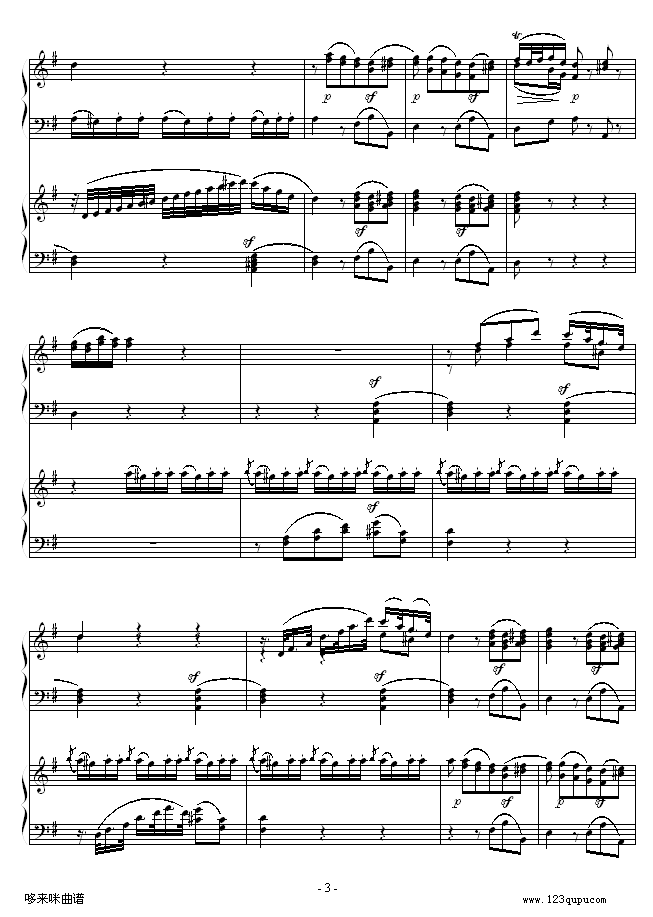 p sf p sf p
sf sf
sf sf
sf
sf sf
p sf p sf
- 3 -
哆来咪曲谱
www.123qupu.com